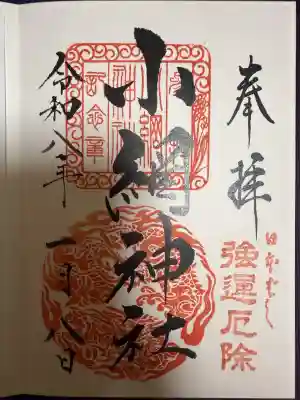 奉拝
日本ばし
強運厄除
小網神社
令和八年
一月八日